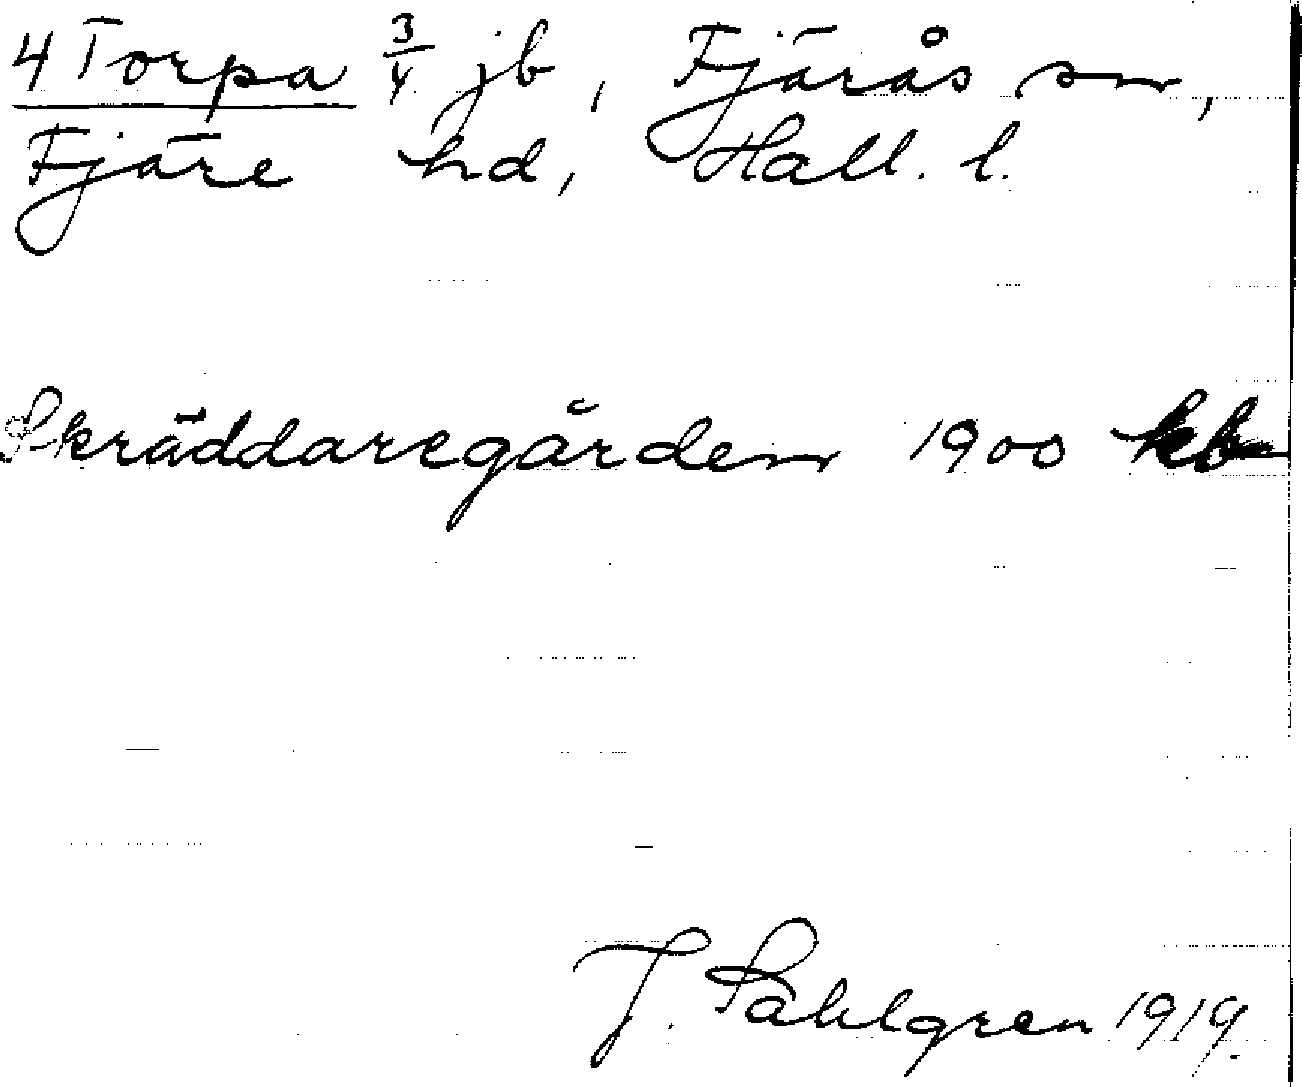 4 Torpa 3/4 jb, Fjärås sn,
Fjäre hd, Hall. l.
Skräddaregården 1900 kb
J. Sahlgren 1919.